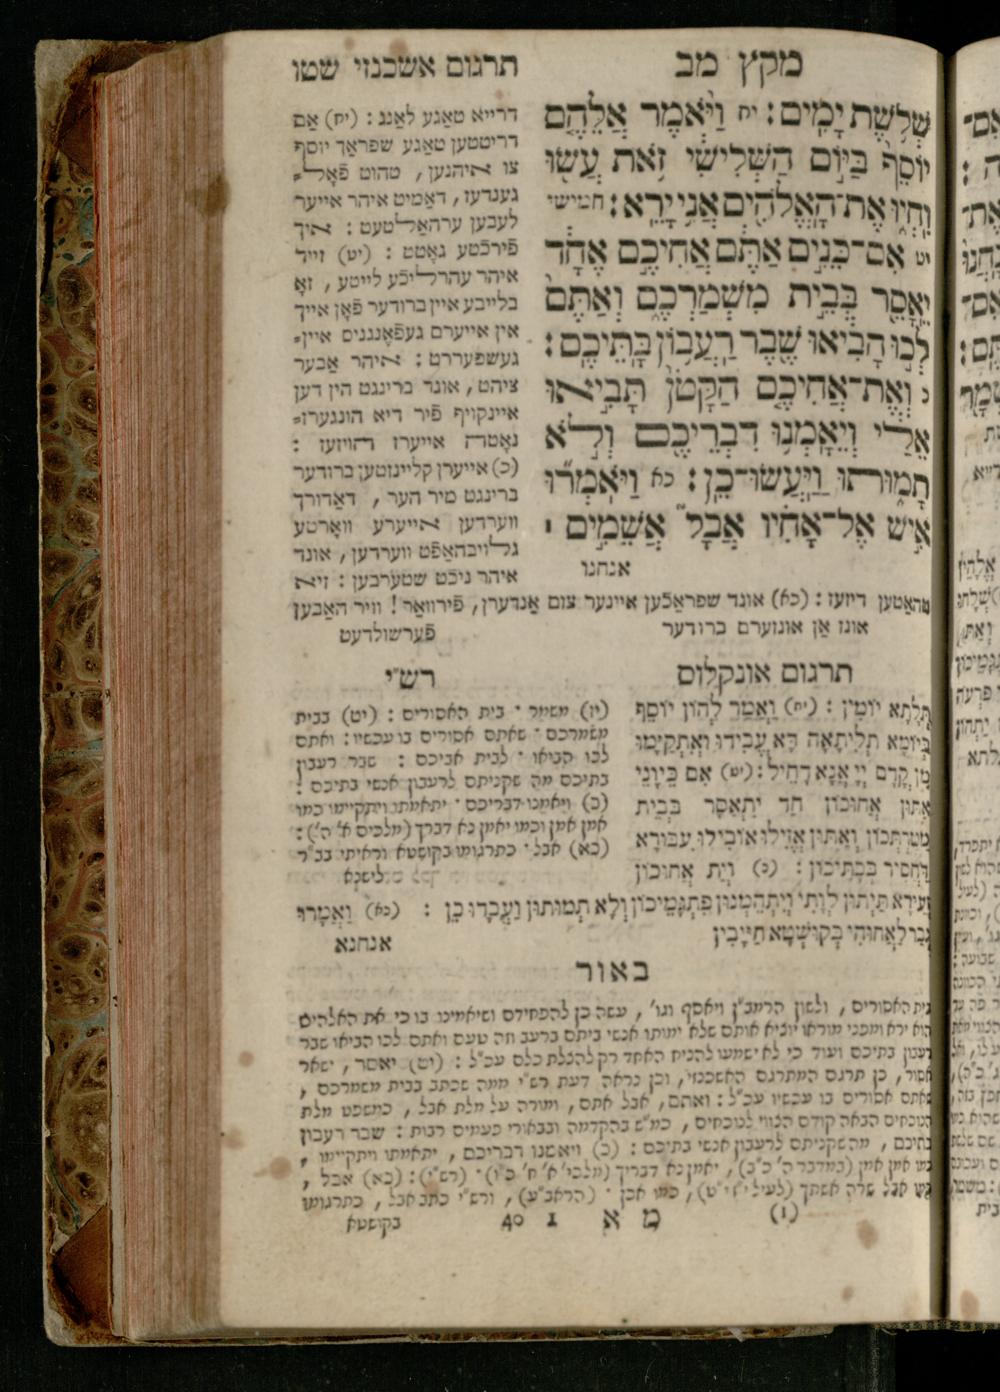 מקץ מב
תרגום אשכנזי שטו
שְׁלֹשֶׁת יָמִים: יח וַיֹּאמֶר אֲלֵהֶם
יוֹסֵף בַּיּוֹם הַשְּׁלִישִׁי זֹאת עֲשׂוּ
וִחְיוּ אֶת־הָאֱלֹהִים אֲנִי יָרֵא: חמישי
יט אִם־כֵּנִים אַתֶּם אֲחִיכֶם אֶחָד
יֵאָסֵר בְּבֵית מִשְׁמַרְכֶם וְאַתֶּם
לְכוּ הָבִיאוּ שֶׁבֶר רַעֲבוֹן בָּתֵּיכֶם:
כ וְאֶת־אֲחִיכֶם הַקָּטֹן תָּבִיאוּ
אֵלַי וְיֵאָמְנוּ דִבְרֵיכֶם וְלֹא
תָמוּתוּ וַיַּעֲשׂוּ־כֵן: כא וַיֹּאמְרוּ
אִישׁ אֶל־אָחִיו אֲבָל אֲשֵׁמִים ׀
אנחנו
דרייא טאַגע לאַנג: (יח) אַם
דריטטען טאַגע שפראַך יוסף
צו איהנען, טהוט פֿאָל=
גענדעז, דאַמיט איהר אייער
לעבען ערהאַלטעט: איך
פֿירכֿטע גאָטט: (יט) זייד
איהר עהרליכֿע לייטע, זאָ
בלייבע איין ברודער פֿאָן אייך
אין אייערם געפֿאַנגניס איין=
געשפּעררט: איהר אַבער
ציהט, אונד ברינגט הין דען
איינקויף פֿיר דיא הונגערז=
נאָטה אייערז הויזעז:
(כ) אייערן קליינזטען ברודער
ברינגט מיר הער, דאַדורך
ווערדען אייערע וואָרטע
גלויבהאַפֿט ווערדען, אונד
איהר ניכֿט שטערבען: זיא
טהאַטען דיזעז: (כא) אונד שפראַכֿען איינער צום אַנדערן, פֿירוואַר! וויר האַבען
אונז אַן אונזערם ברודער פֿערשולדעט
תרגום אונקלוס
תְּלָתָא יוֹמִין: (יח) וַאֲמַר לְהוֹן יוֹסֵף
בְּיוֹמָא תְלִיתָאָה דָּא עֲבִידוּ וְאִתְקַיָּמוּ
מִן קֳדָם יְיָ אֲנָא דָחֵיל: (יט) אִם כֵּיוָנֵי
אַתּוּן אֲחוּכוֹן חַד יִתְאֲסַר בְּבֵית
מַטַּרְתְּכוֹן וְאַתּוּן אֱזִילוּ אוֹבִילוּ עִבּוּרָא
דַּחֲסִיר בְּבָתֵּיכוֹן: (כ) וְיָת אֲחוּכוֹן
זְעֵירָא תַּיְתוּן לְוָתִי וְיִתְהֵמְנוּן פִּתְגָּמֵיכוֹן וְלָא תְמוּתוּן וַעֲבָדוּ כֵן: (כא) וַאֲמָרוּ
גְּבַר לַאֲחוּהִי בְּקוּשְׁטָא חַיָּיבִין אנחנא
רש״י
(יז) משמר · בית האסורים: (יט) בבית
משמרכם · שאתם אסורים בו עכשיו: ואתם
לכו הביאו · לבית אביכם: שבר רעבון
בתיכם מה שקניתם לרעבון אנשי בתיכם:
(כ) ויאמנו דבריכם · יתאמתו ויתקיימו כמו
אמן אמן וכמו יאמן נא דברך (מלכים א׳ ח׳):
(כא) אבל · כתרגומו בקושטא וראיתי בב״ר
לישנא
באור
בית האסורים, ולשון הרמב״ן ויאסף וגו׳, עשה כן להפחידם ושיאמינו בו כי את האלהים
הוא ירא ומפני מוראו יוציא אותם שלא ימותו אנשי ביתם ברעב וזה טעם ואתם לכו הביאו שבר
רעבון בתיכם ועוד כי לא ישמעו להניח האחד רק להצלת כלם עכ״ל: (יט) יאסר, ישאר
אסור, כן תרגם המתרגם האשכנזי, וכן נראה דעת רש״י ממה שכתב בבית משמרכם,
שאתם אסורים בו עכשיו עכ״ל: ואתם, אבל אתם, ומורה על מלת אבל, כמשפט מלת
הנוכחים הבאה קודם הכנוי לנוכחים, כמ״ש בהקדמה ובבאורי פעמים רבות: שבר רעבון
בתיכם, מה שקניתם לרעבון אנשי בתיכם: (כ) ויאמנו דבריכם, יתאמתו ויתקיימו,
כמו אמן אמן (במדבר ה׳ כ״ב), יאמן נא דבריך (מלכי׳ א׳ ח׳ כ״ו) · (רש״י): (כא) אבל,
כמו אבל שרה אשתך (לעיל י״ז י״ט), כמו אכן · (הראב״ע), ורש״י כתב אבל, כתרגומו
(1) מ א 1 40 בקושטא